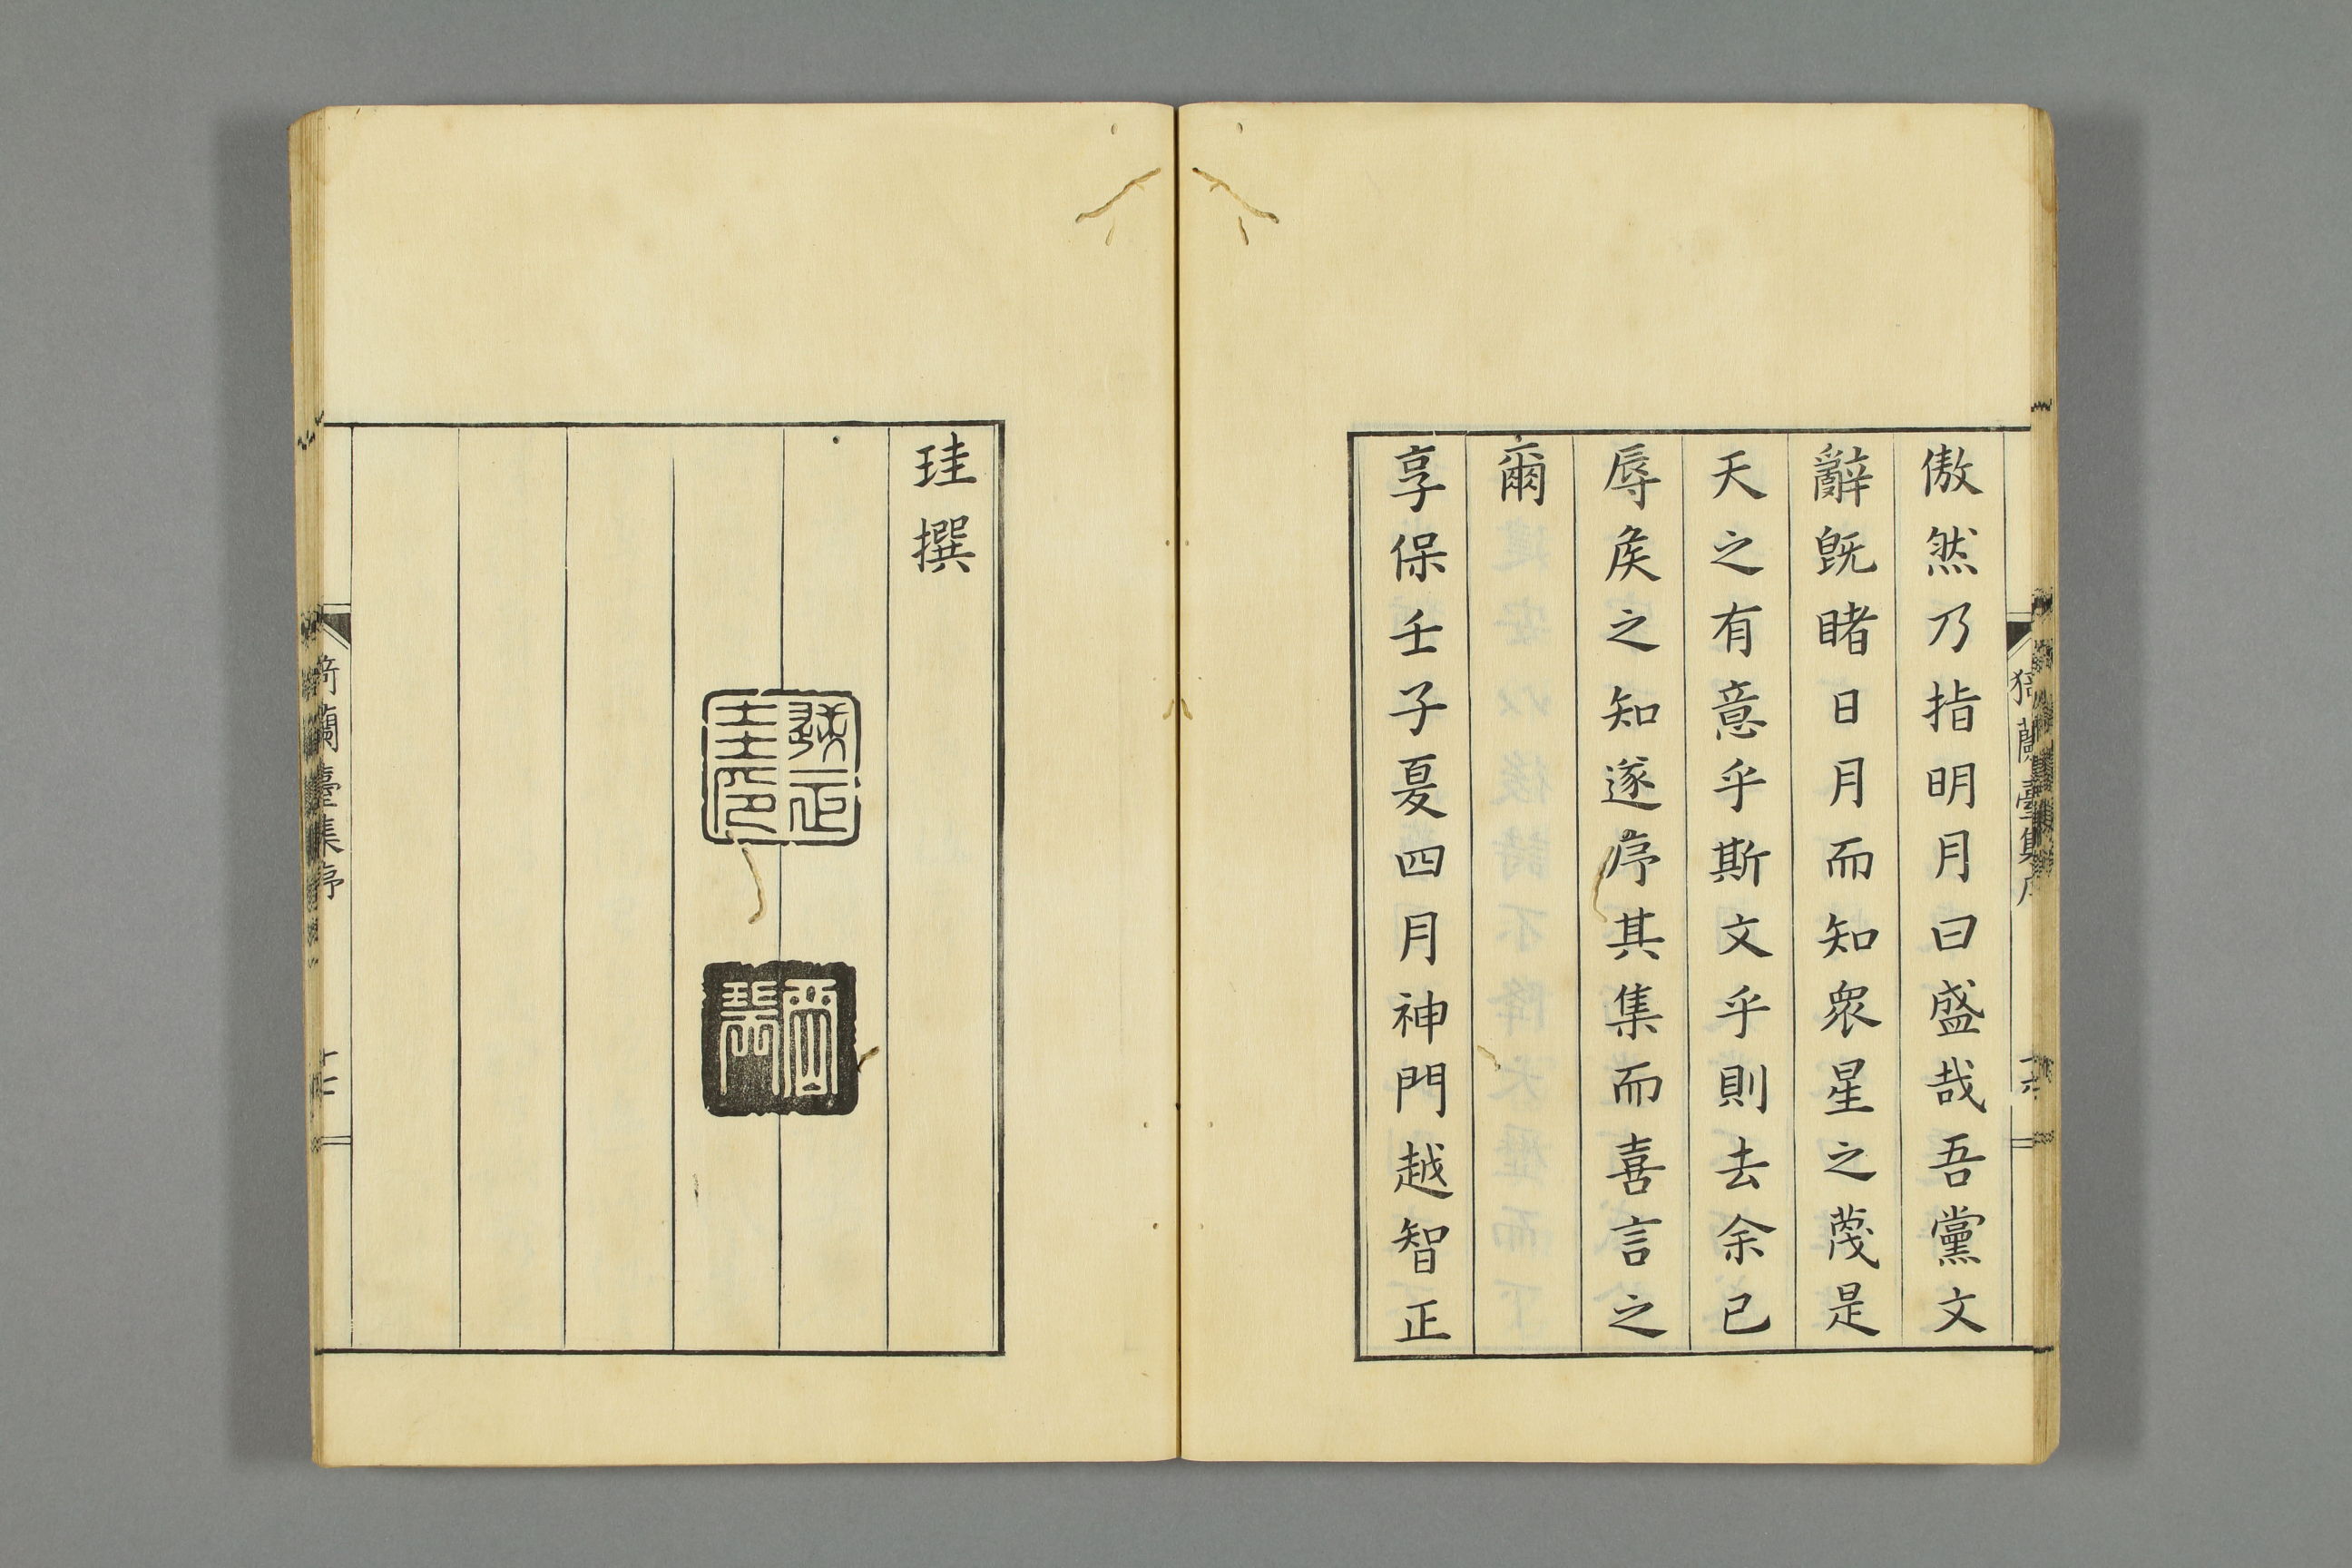 傲然乃指明月曰盛哉吾黨文
辭既睹日月而知衆星之蔑是
天之有意乎斯文乎則去余已
辱矦之知遂序其集而喜言之
爾
享保壬子夏四月神門越智正
珪撰
猗蘭臺集序
十六
猗蘭臺集序
十七